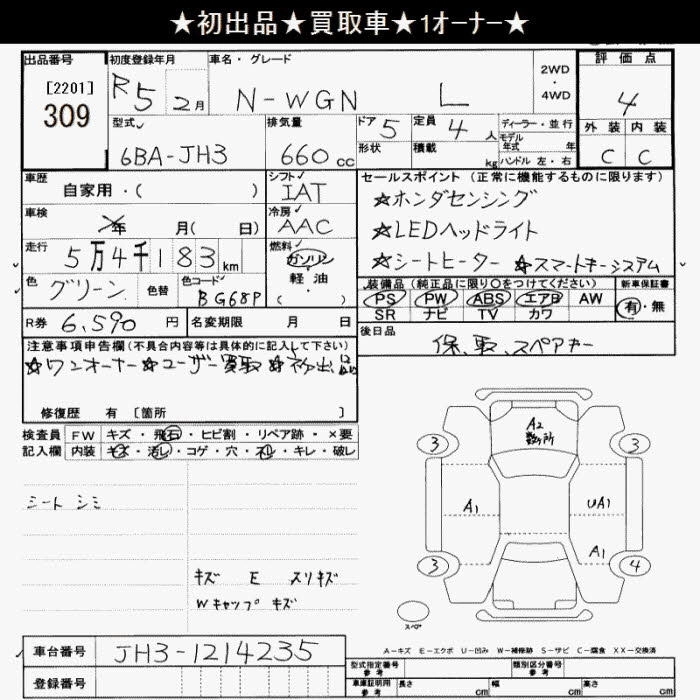 ★初出品★買取車★1オーナー★
出品番号
[2201]
309
初度登録年月
R5 2月
車名・グレード
N-WGN L
2WD
・
4WD
評価点
4
外装 内装
C C
型式
6BA-JH3
排気量
660cc
ドア 5
形状
定員 4人
積載 kg
ディーラー・並行
モデル年式 年
ハンドル 左・右
車歴
自家用・( )
シフト
IAT
車検
年 月( 日)
冷房
AAC
走行
5万4千183km
燃料
ガソリン
軽油
・( )
色 グリーン 色替
色コード BG68P
R券 6,590円
名変期限 月 日
セールスポイント(正常に機能するものに限ります)
☆ホンダセンシング
☆LEDヘッドライト
☆シートヒーター ☆スマートキーシステム
装備品(純正品に限り○をつけてください)
PS PW ABS エアB AW
SR ナビ TV カワ
新車保証書
有・無
後日品
保、取、スペアキー
注意事項申告欄(不具合内容等は具体的に記入して下さい)
☆ワンオーナー ☆ユーザー買取 ☆初出品
修復歴 有 [箇所 ]
検査員 FW キズ・飛石・ヒビ割・リペア跡・×要
記入欄 内装 キズ・汚し・コゲ・穴・スレ・キレ・破レ
シート シミ
キズ E スリキズ
Wキャップ キズ
A2
数ヶ所
3 3
A1 UA1
A1
3 4
スペア
A-キズ E-エクボ U-凹み W-補修跡 S-サビ C-腐食 XX-交換済
車台番号 JH3-1214235
登録番号
型式指定番号 参考
類別区分番号 参考
車庫証明用 参考 長さ cm 幅 cm 高さ cm